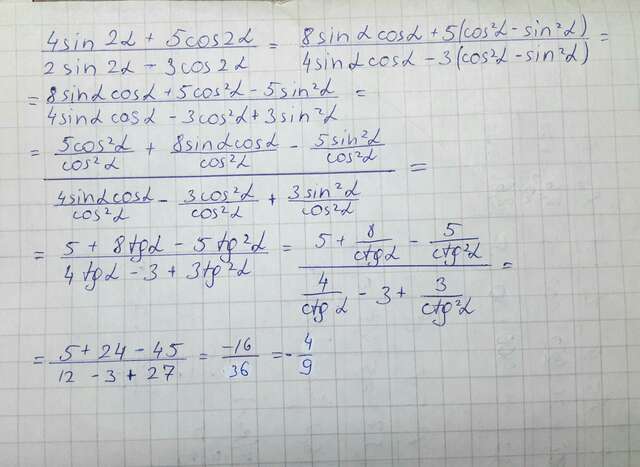 (4sin 2α + 5cos2α)/(2sin 2α - 3cos2α) = (8sinα cosα + 5(cos²α - sin²α))/(4sinα cosα - 3(cos²α - sin²α)) =
= (8sinα cosα + 5cos²α - 5sin²α)/(4sinα cosα - 3cos²α + 3sin²α) =
= (5cos²α/cos²α + 8sinα cosα/cos²α - 5sin²α/cos²α)/(4sinα cosα/cos²α - 3cos²α/cos²α + 3sin²α/cos²α) =
= (5 + 8tgα - 5tg²α)/(4tgα - 3 + 3tg²α) = (5 + 8/ctgα - 5/ctg²α)/(4/ctgα - 3 + 3/ctg²α) =
= (5 + 24 - 45)/(12 - 3 + 27) = -16/36 = -4/9